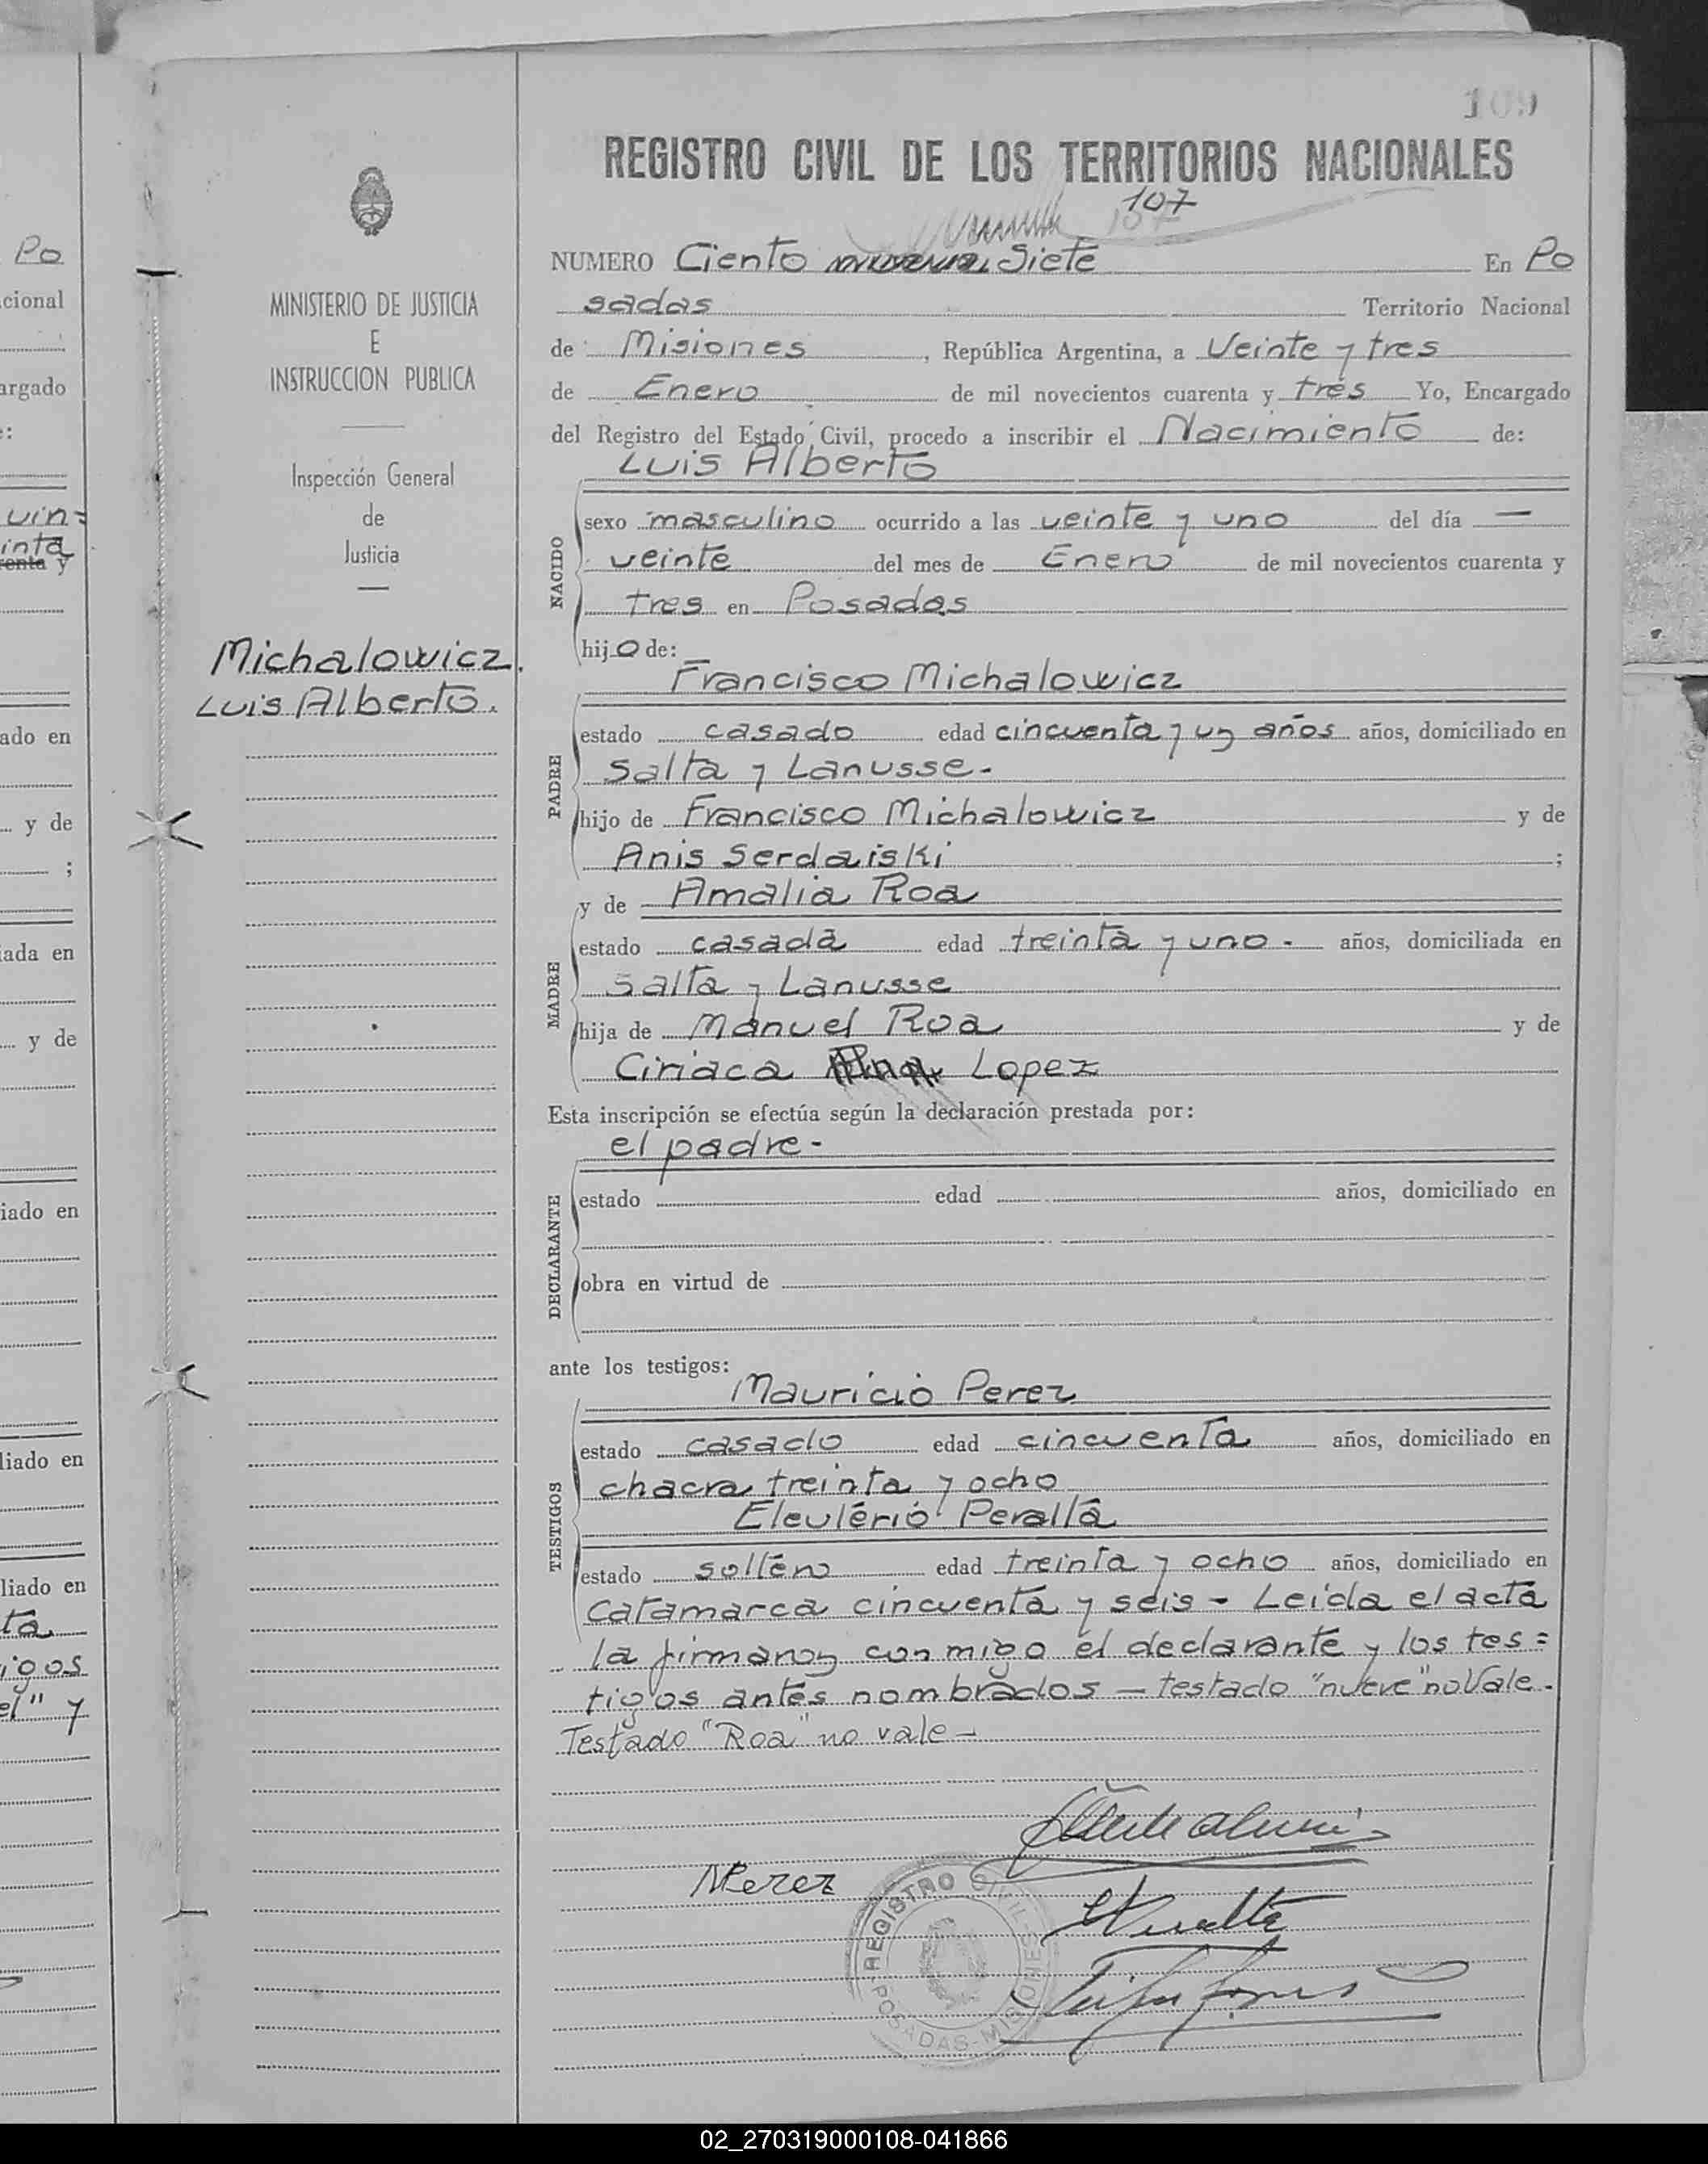 109
REGISTRO CIVIL DE LOS TERRITORIOS NACIONALES
107
NUMERO Ciento Siete En Po
sadas Territorio Nacional
de Misiones, República Argentina, a Veinte y tres
de Enero de mil novecientos cuarenta y tres Yo, Encargado
del Registro del Estado Civil, procedo a inscribir el Nacimiento de:
Luis Alberto
NACIDO
sexo masculino ocurrido a las veinte y uno del día —
veinte del mes de Enero de mil novecientos cuarenta y
tres en Posadas
hijo de:
Francisco Michalowicz
PADRE
estado casado edad cincuenta y un años años, domiciliado en
Salta y Lanusse.-
hijo de Francisco Michalowicz y de
Anis Serdaiski ;
y de Amalia Roa
MADRE
estado casada edad treinta y uno - años, domiciliada en
Salta y Lanusse
hija de Manuel Roa y de
Ciriaca Lopez
Esta inscripción se efectúa según la declaración prestada por:
el padre -
DECLARANTE
estado edad años, domiciliado en
obra en virtud de
ante los testigos:
Mauricio Perez
TESTIGOS
estado casado edad cincuenta años, domiciliado en
chacra treinta y ocho
Eleuterio Peralta
estado soltero edad treinta y ocho años, domiciliado en
Catamarca cincuenta y seis - Leida el acta
la firman conmigo el declarante y los tes=
tigos antes nombrados — testado "nueve" no Vale.
Testado "Roa" no vale —
MPerez
REGISTRO CIVIL
POSADAS-MISIONES
MINISTERIO DE JUSTICIA
E
INSTRUCCION PUBLICA
Inspección General
de
Justicia
Michalowicz
Luis Alberto.
Po
cional
argado
e:
uin=
inta
renta y
ado en
y de
;
iada en
y de
iado en
liado en
liado en
ta
igos
el" y
02_270319000108-041866